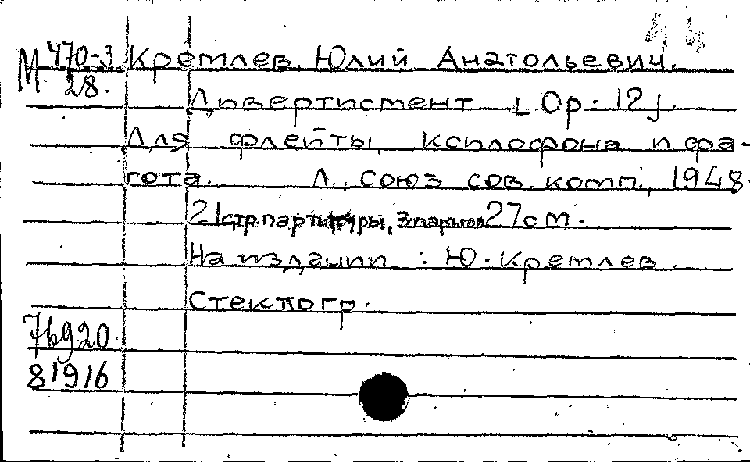 М 470-3 Кремлев, Юлий Анатольевич.
28.
Дивертисмент [Op. 12].
Для флейты, ксилофона и фа-
гота. Л., Союз сов. комп., 1948.
21 стр. партитуры, 27 см.
На издании : Ю. Кремлев.
Стеклогр.
76920
81916